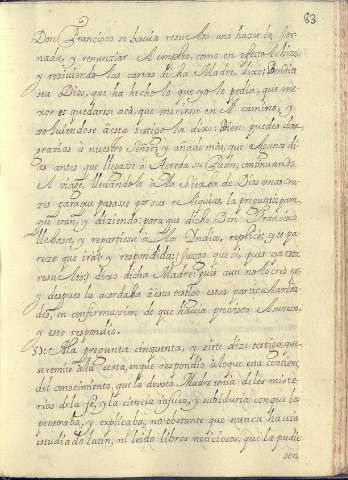 83
Don Francisco se havia resuelto a no hacer la Jor
nada, y renunziar el empleo, como en efecto lo hizo
y reziviendo las cartas dicha Madre, dixo: Bendito
sea Dios, que ha hecho lo que yo le pedia, que me
xor es quedarse acà, que morirse en el camino; y
volviendose à esta testigo la dixo: Bien puedes dar
grazias à nuestro Señor; y añade mas, que algunos di
as antes que llegasse à Agreda su Padre, continuando
el viage, llevandole à la Sierba de Dios unas cru
zes para que passase por sus reliquias, la pregunto; para
que eran, y diziendo: para que dicho Don Francisco
llebase, y repartiesse à los Indios, replicò; y te pa
reze que irà? y respondida: (Juzgo que sì, pues ya està
resuelto) dixo dicha Madre: pues aun no lo creo yo;
y despues la acordaba à esta testigo estas particularida
des, en confirmacion, de que havia previsto el suceso,
y esto respondio.
57. A la pregunta cinquenta, y siete dize testigo, que
se remite à la sexta, en que respondiò à lo que esta contiene
del conocimiento, que la devota Madre tenia de los miste
rios de la fe, y la ciencia infusa, y sabiduria con que los
penetraba, y explicaba, no obstante que nunca havia
estudiado latin, ni leido libros noticiosos, que la pudie
sen